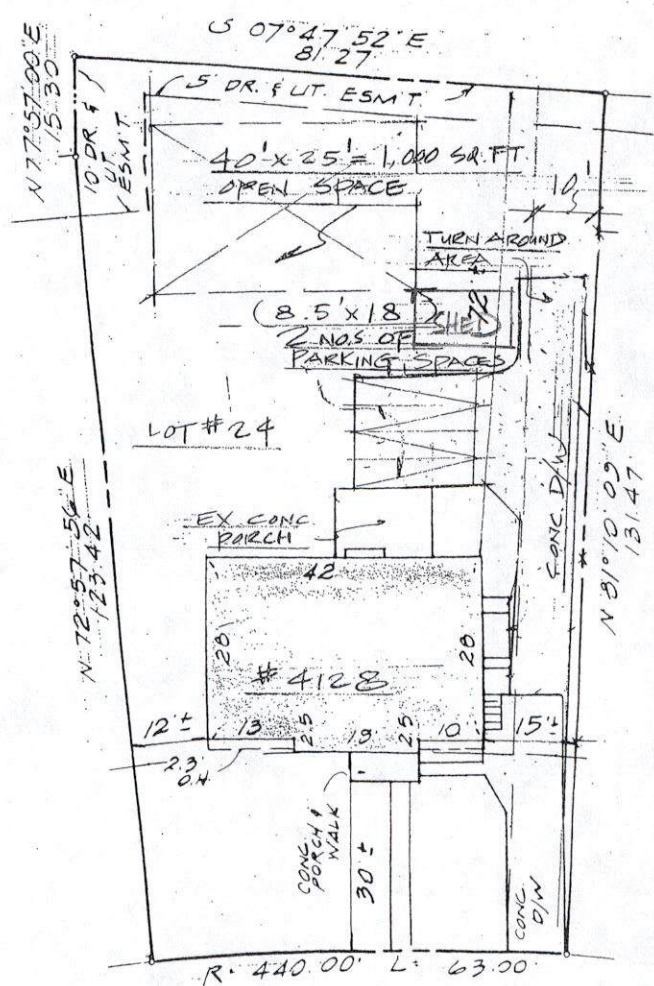 S 07° 47' 52" E
81.27
N 77° 57' 00" E
15.30
5' DR. & UT. ESM'T
10' DR. &
UT
ESM'T
40' x 25' = 1,000 SQ. FT
OPEN SPACE
10'
TURN AROUND
AREA
(8.5' x 18')
SHED
12
2 NOS OF
PARKING SPACES
LOT # 24
CONC D/W
N 81° 10' 09" E
131.47
N 72° 57' 56" E
123.42
EX CONC
PORCH
42
28
28
# 4128
12'±
13
2.5
19
2.5
10
15'±
2.3
O.H.
CONC
PORCH &
WALK
30'±
CONC
D/W
R= 440.00' L= 63.00'